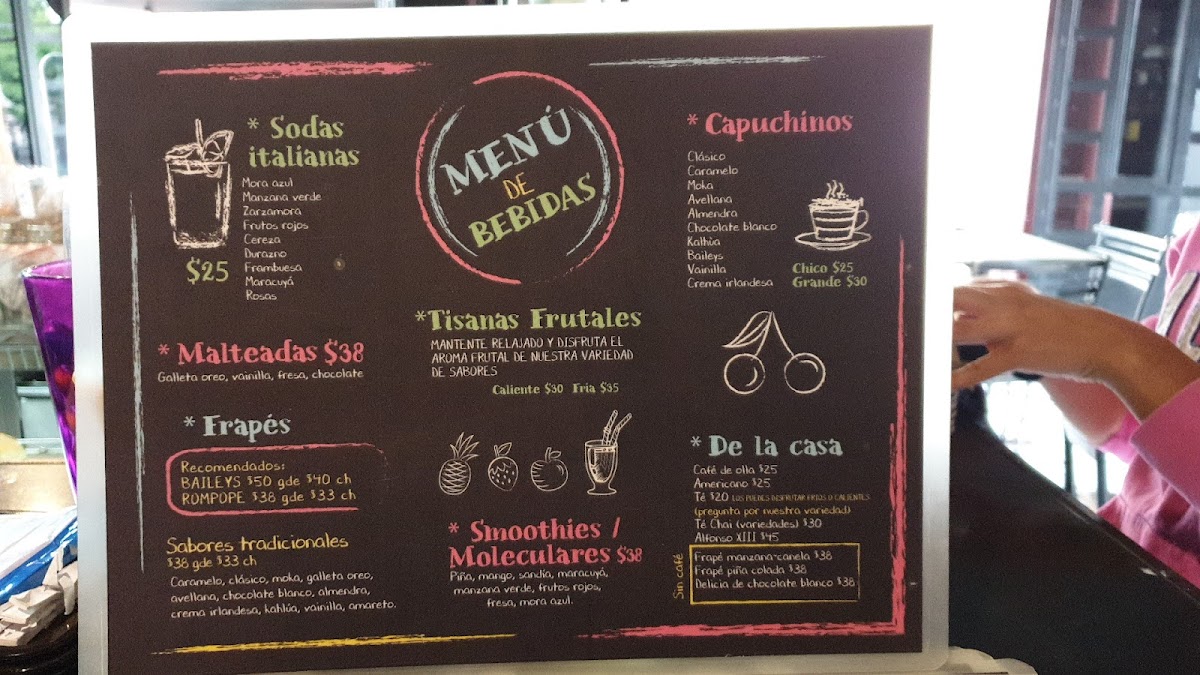 * Sodas
italianas
Mora azul
Manzana verde
Zarzamora
Frutos rojos
Cereza
Durazno
Frambuesa
Maracuyá
Rosas
$25
* Malteadas $38
Galleta oreo, vainilla, fresa, chocolate
* Frapés
Recomendados:
BAILEYS $50 gde $40 ch
ROMPOPE $38 gde $33 ch
Sabores tradicionales
$38 gde $33 ch
Caramelo, clásico, moka, galleta oreo,
avellana, chocolate blanco, almendra,
crema irlandesa, kahlúa, vainilla, amareto.
MENÚ
DE
BEBIDAS
*Tisanas Frutales
MANTENTE RELAJADO Y DISFRUTA EL
AROMA FRUTAL DE NUESTRA VARIEDAD
DE SABORES
Caliente $30 Fría $35
* Smoothies /
Moleculares $38
Piña, mango, sandía, maracuyá,
manzana verde, frutos rojos,
fresa, mora azul.
* Capuchinos
Clásico
Caramelo
Moka
Avellana
Almendra
Chocolate blanco
Kalhúa
Baileys
Vainilla
Crema irlandesa
Chico $25
Grande $30
* De la casa
Café de olla $25
Americano $25
Té $20 LOS PUEDES DISFRUTAR FRIOS O CALIENTES
(pregunta por nuestra variedad)
Té Chai (variedades) $30
Alfonso XIII $45
Sin café
Frapé manzana-canela $38
Frapé piña colada $38
Delicia de chocolate blanco $38